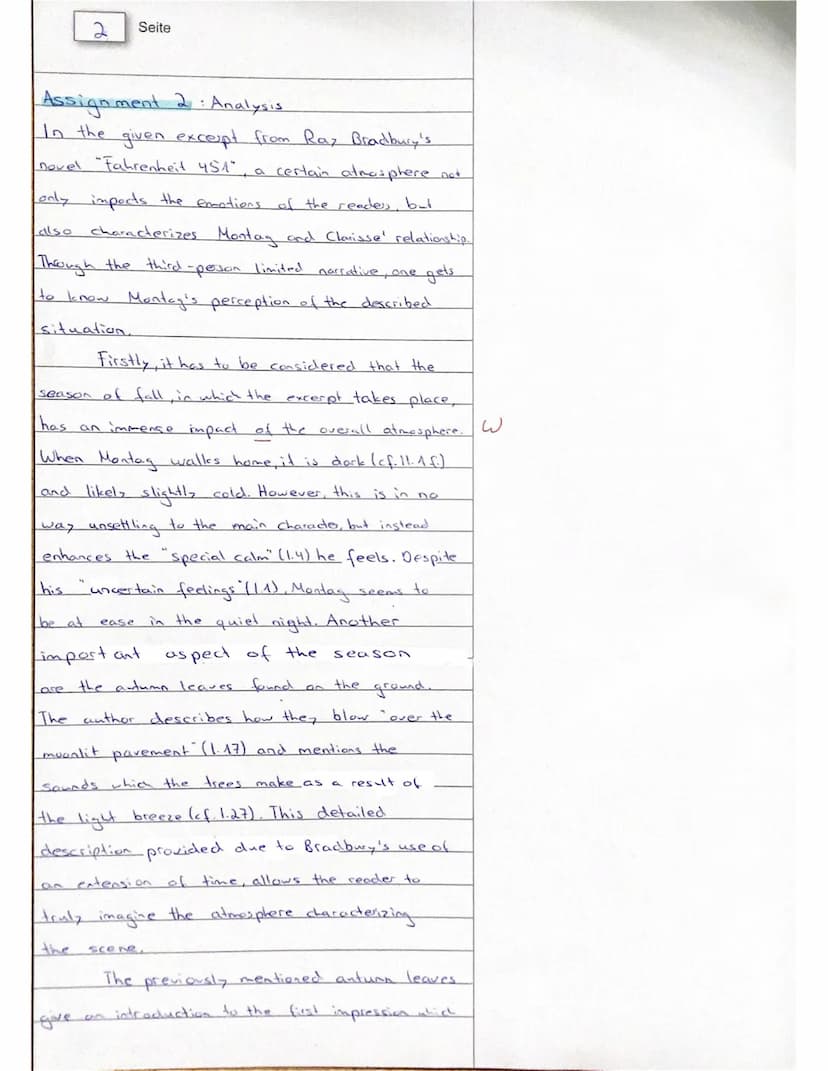 2 Seite
Assignment 2 : Analysis
In the given excerpt from Ray Bradbury's
novel "Fahrenheit 451", a certain atmosphere not
only impacts the emotions of the readers, but
also characterizes Montag and Clarisse' relationship.
Through the third-person limited narrative, one gets
to know Montag's perception of the described
situation.
Firstly, it has to be considered that the
season of fall, in which the excerpt takes place,
has an immense impact of the overall atmosphere. W
When Montag walks home, it is dark (cf. ll. 1 f.)
and likely slightly cold. However, this is in no
way unsettling to the main character, but instead
enhances the "special calm" (l.4) he feels. Despite
his "uncertain feelings" (l.1), Montag seems to
be at ease in the quiet night. Another
important aspect of the season
are the autumn leaves found on the ground.
The author describes how they blow "over the
moonlit pavement" (l.17) and mentions the
sounds which the trees make as a result of
the light breeze (cf. l.27). This detailed
description provided due to Bradbury's use of
an extension of time, allows the reader to
truly imagine the atmosphere characterizing
the scene.
The previously mentioned autumn leaves
give an introduction to the first impression which